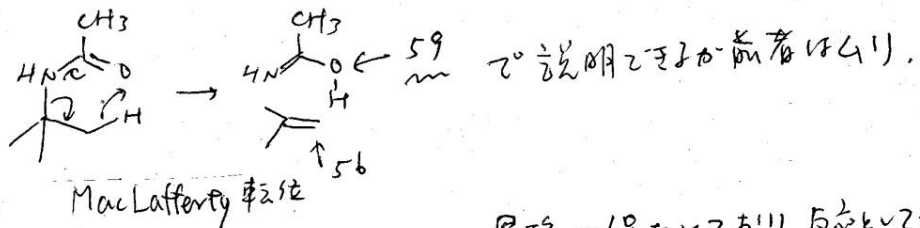 CH3 CH3
HN C O HN O ← 59 で説明できるが前者はムリ.
H → H
↑56
MacLafferty 転位